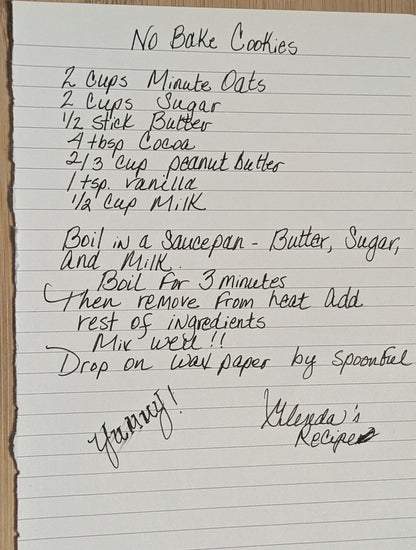 No Bake Cookies
2 Cups Minute Oats
2 Cups Sugar
1/2 Stick Butter
4 tbsp Cocoa
2/3 Cup peanut butter
1 tsp. vanilla
1/2 Cup Milk
Boil in a Saucepan - Butter, Sugar,
and Milk.
Boil for 3 minutes
Then remove from heat add
rest of ingredients
Mix well!!
Drop on wax paper by spoonful
Yummy!
Glenda's
Recipe